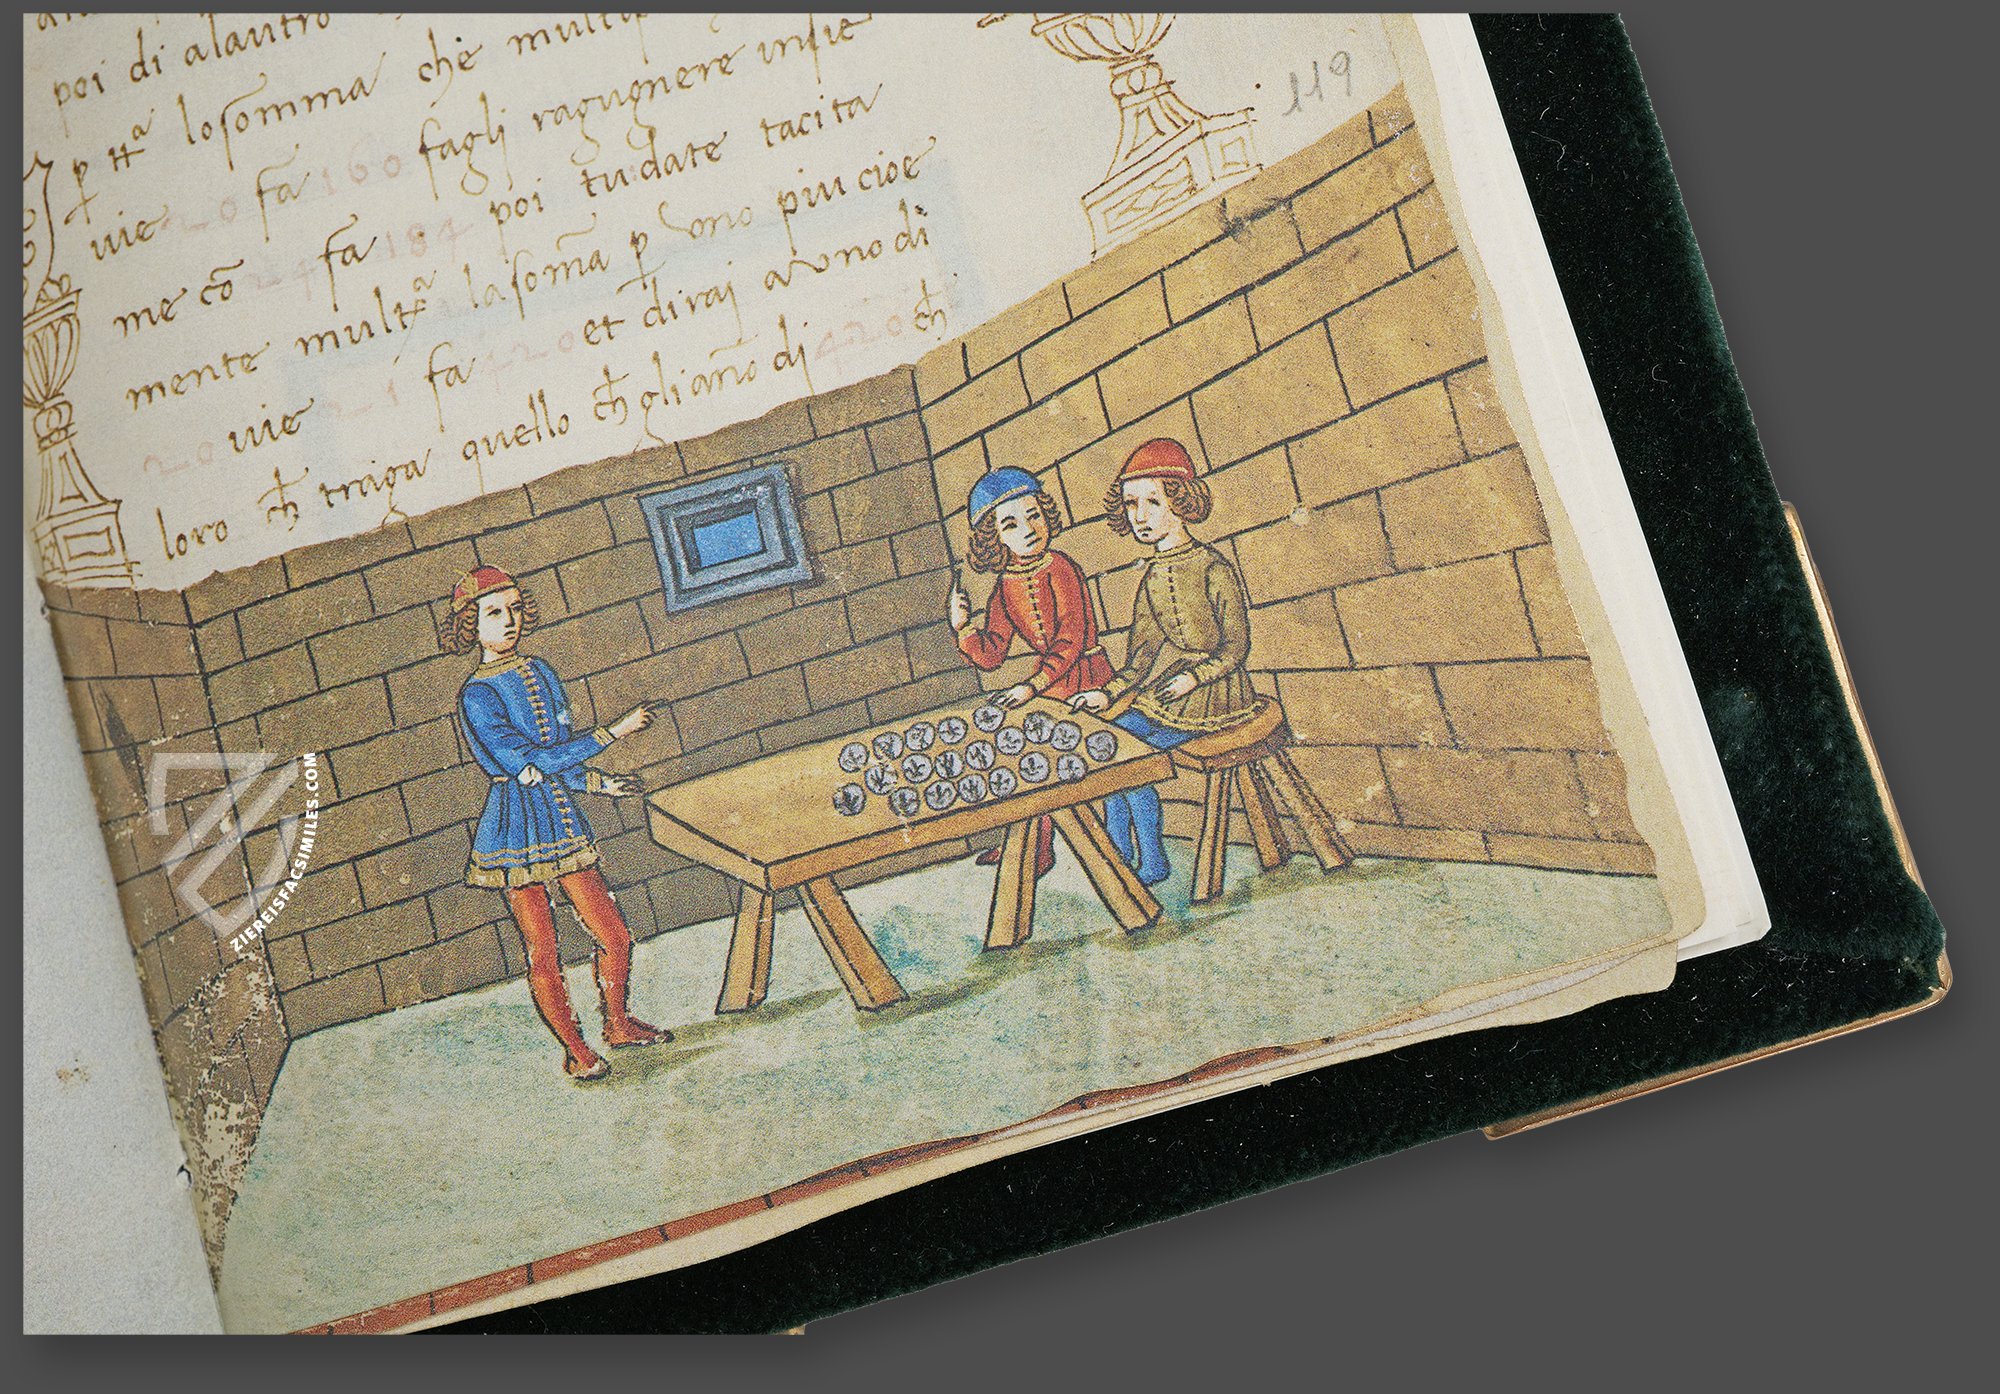 poi di alautro
p tta losomma chè multip
uie 20 fa 160 fagli ragugnere insie
me cō 24 fa 184 poi tudate tacita
mente multa lasomā p vno piu cioe
20 uie 21 fa 420 et diraj avno di
loro ch traga quello ch gliano dj 420 ch
119
ZIEREISFACSIMILES.COM